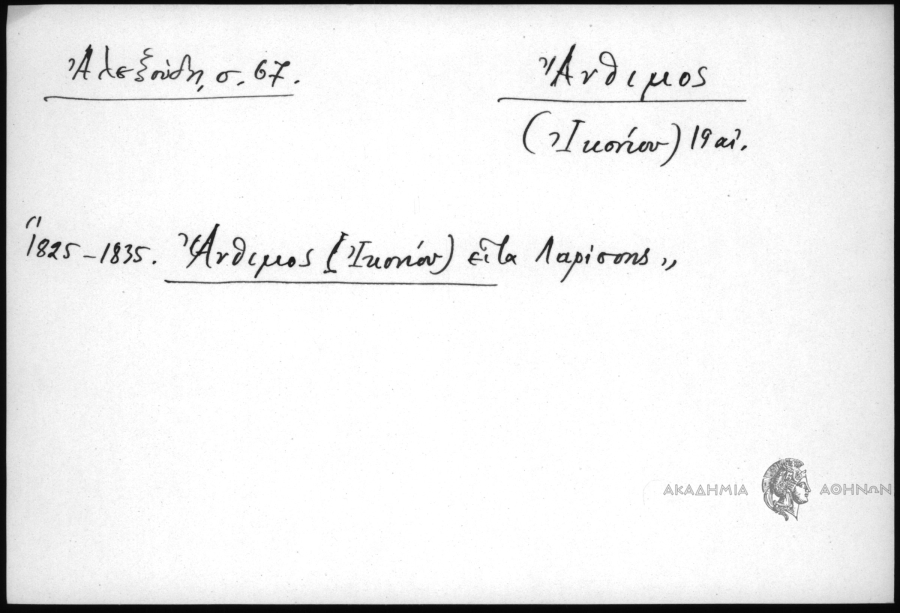 Ἀλεξούδη, σ. 67.
Ἄνθιμος
(Ἰκονίου) 19 αἰ.
"1825-1835. Ἄνθιμος (Ἰκονίου) εἶτα Λαρίσσης„
ΑΚΑΔΗΜΙΑ ΑΘΗΝΩΝ